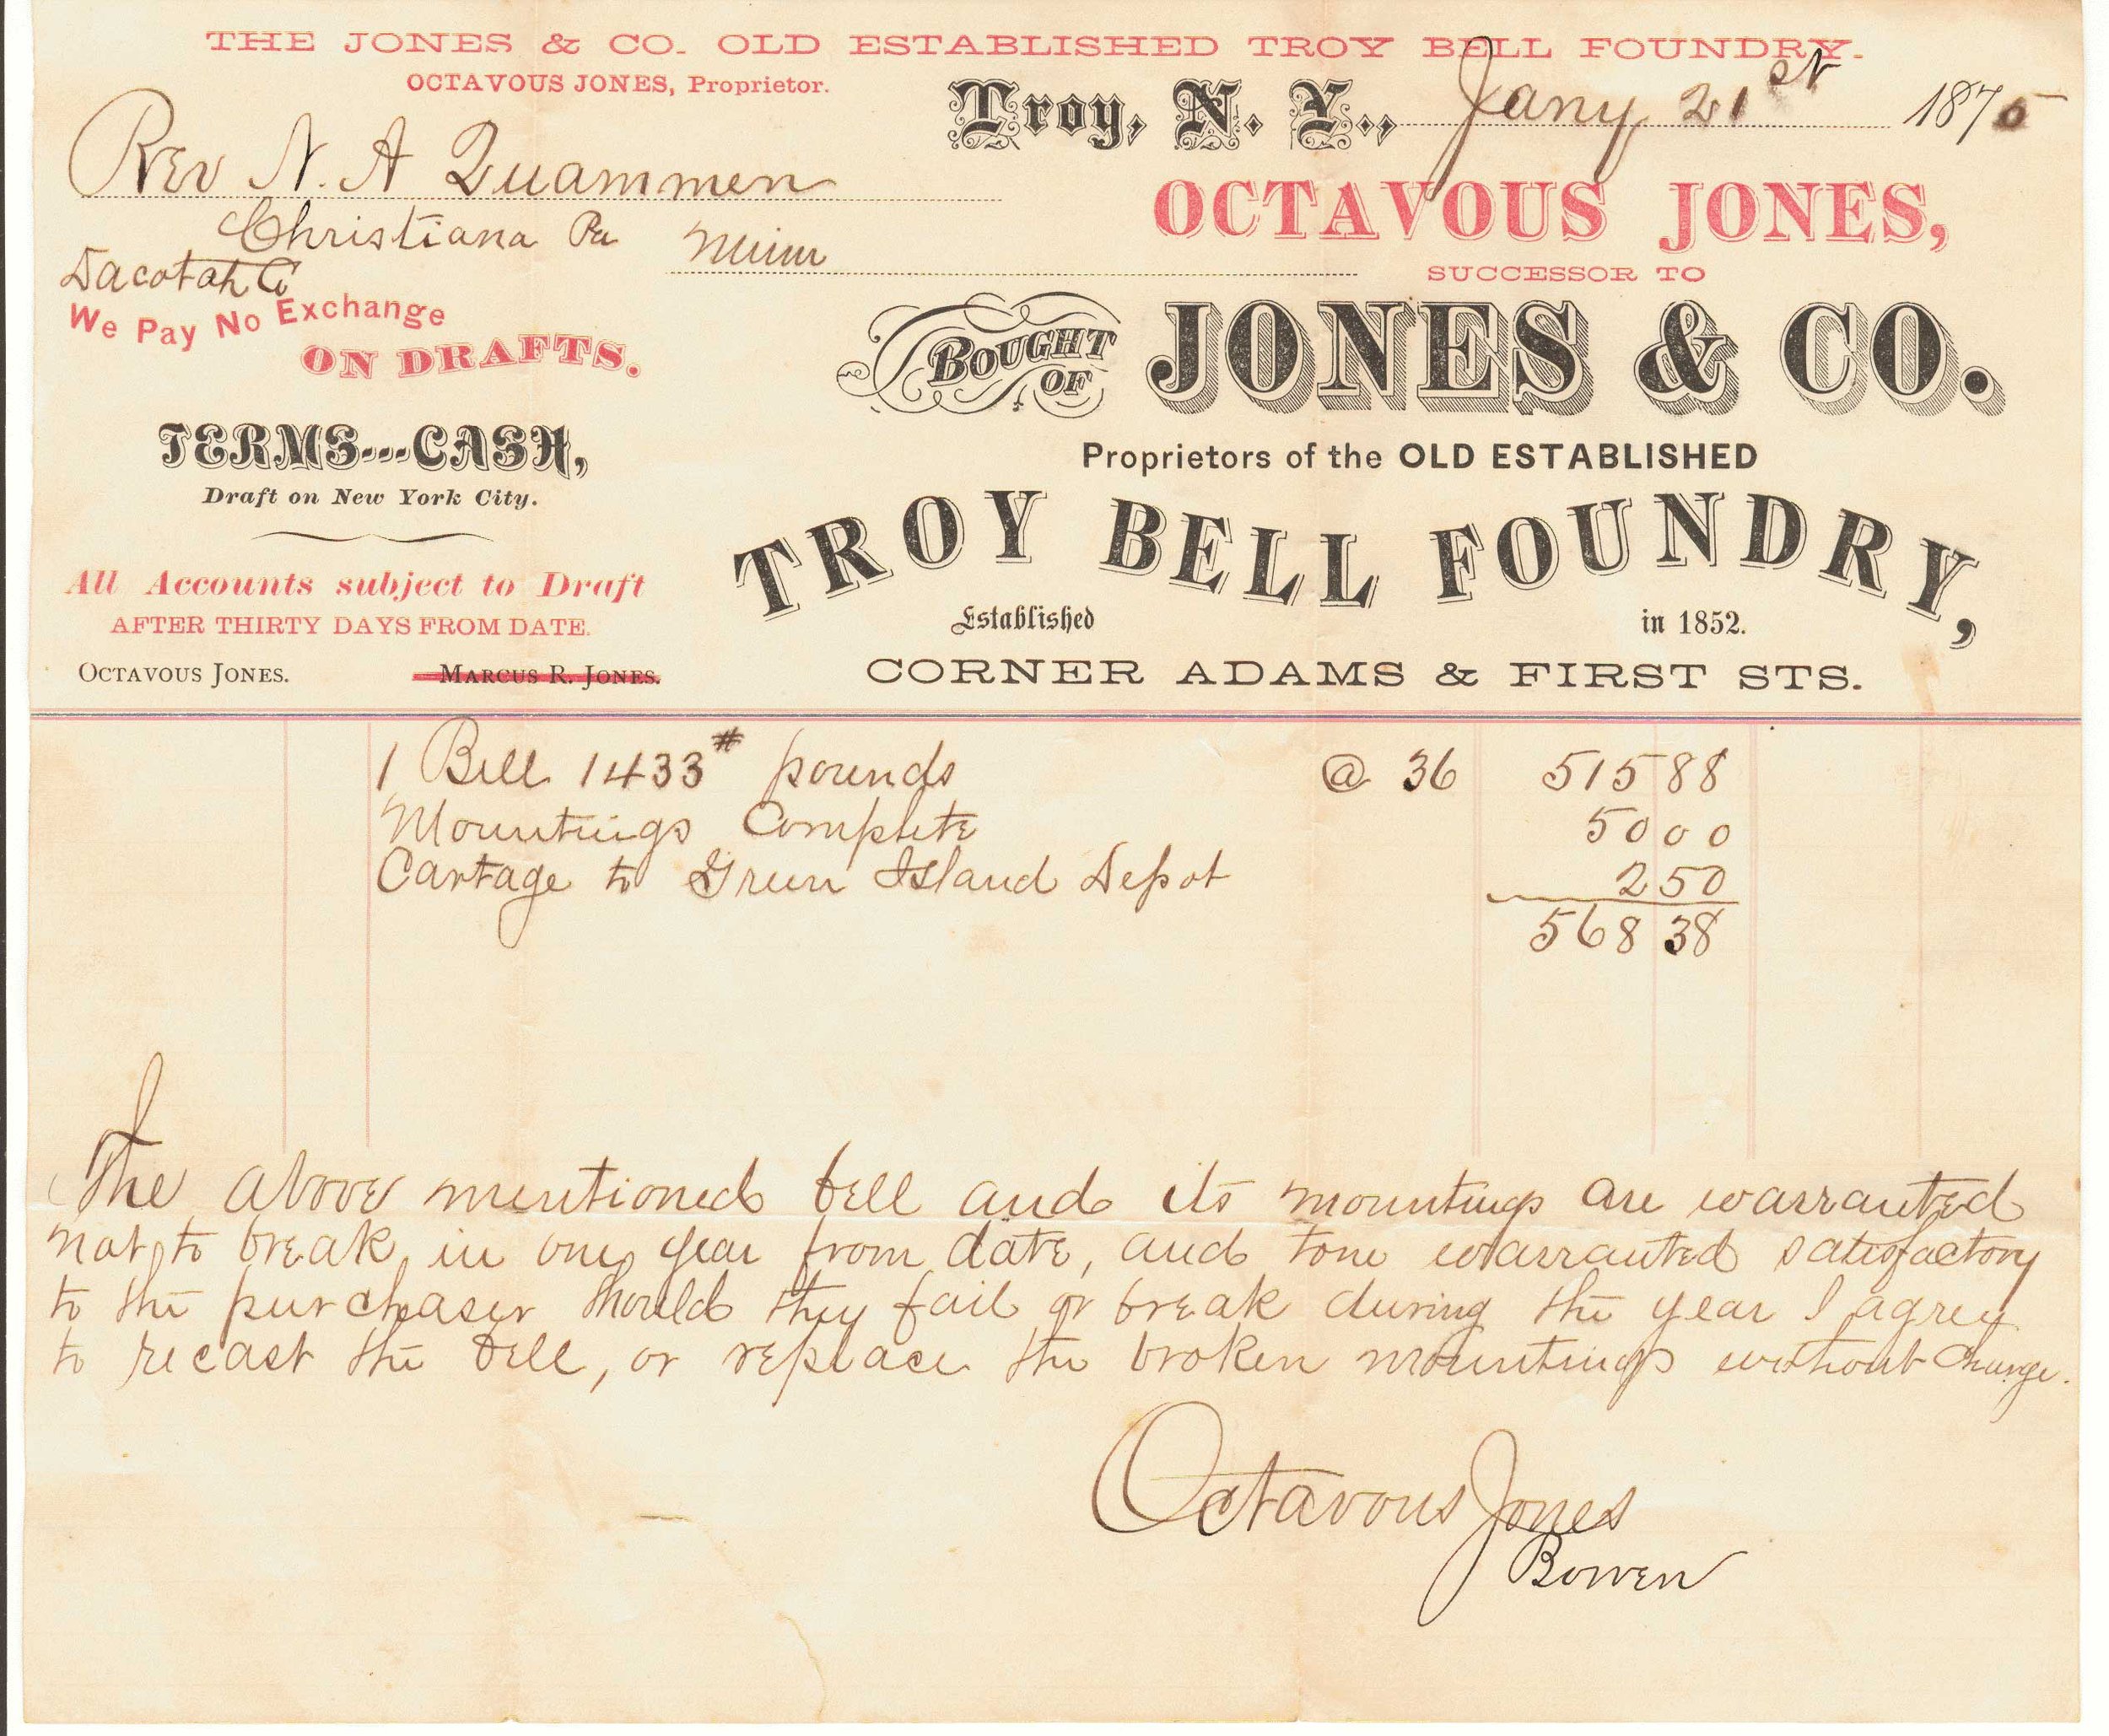 THE JONES & CO. OLD ESTABLISHED TROY BELL FOUNDRY.
OCTAVOUS JONES, Proprietor.
Troy, N. Y., Jany 21st 1875
Rev N. A Quammen
Christiana Minn
Dacotah Co
OCTAVOUS JONES,
SUCCESSOR TO
We Pay No Exchange
ON DRAFTS.
BOUGHT OF JONES & CO.
TERMS---CASH,
Draft on New York City.
Proprietors of the OLD ESTABLISHED
TROY BELL FOUNDRY,
Established in 1852.
All Accounts subject to Draft
AFTER THIRTY DAYS FROM DATE.
OCTAVOUS JONES. MARCUS R. JONES.
CORNER ADAMS & FIRST STS.
1 Bell 1433# pounds @ 36 515 88
Mountings Complete 50 00
Cartage to Green Island Depot 2 50
568 38
The above mentioned bell and its mountings are warranted
not to break in one year from date, and tone warranted satisfactory
to the purchaser should they fail or break during the year I agree
to recast the bell, or replace the broken mountings without charge.
Octavous Jones
Bowen